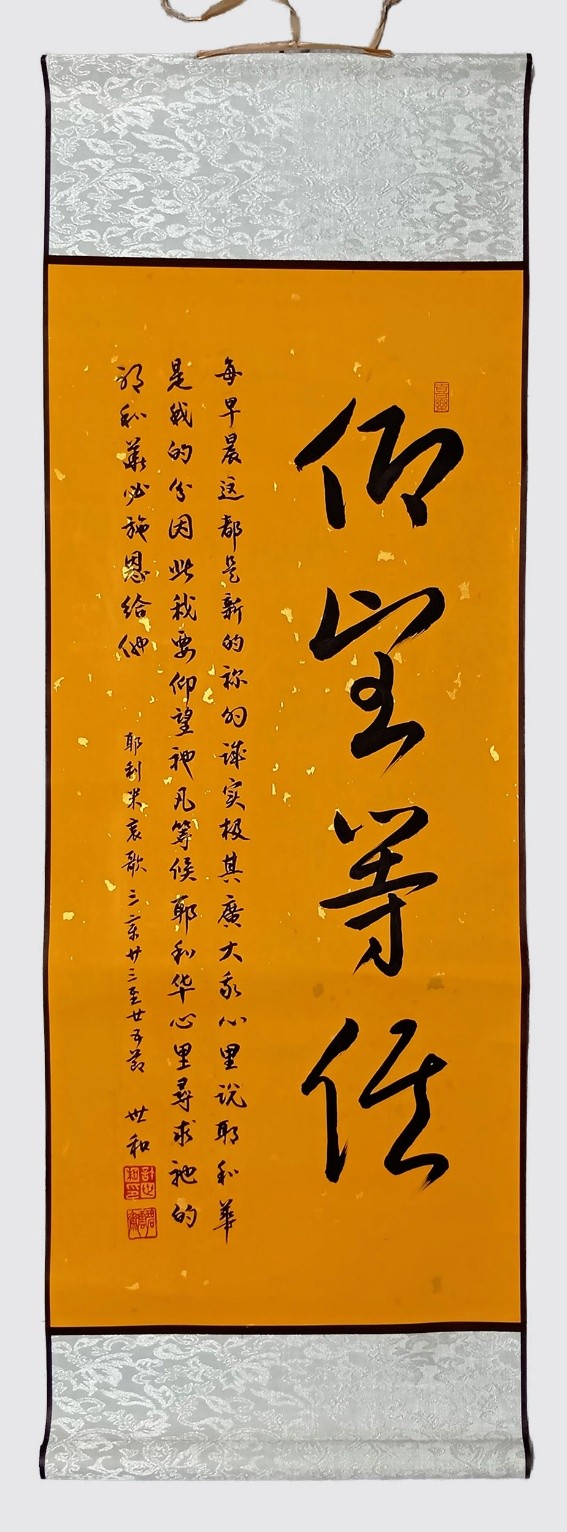 仰望等候
每早晨这都是新的祢的诚实极其廣大我心里说耶和華
是我的份因此我要仰望祂凡等候耶和华心里尋求祂的
耶和華必施恩给他
耶利米哀歌三章廿三至廿五節
世和